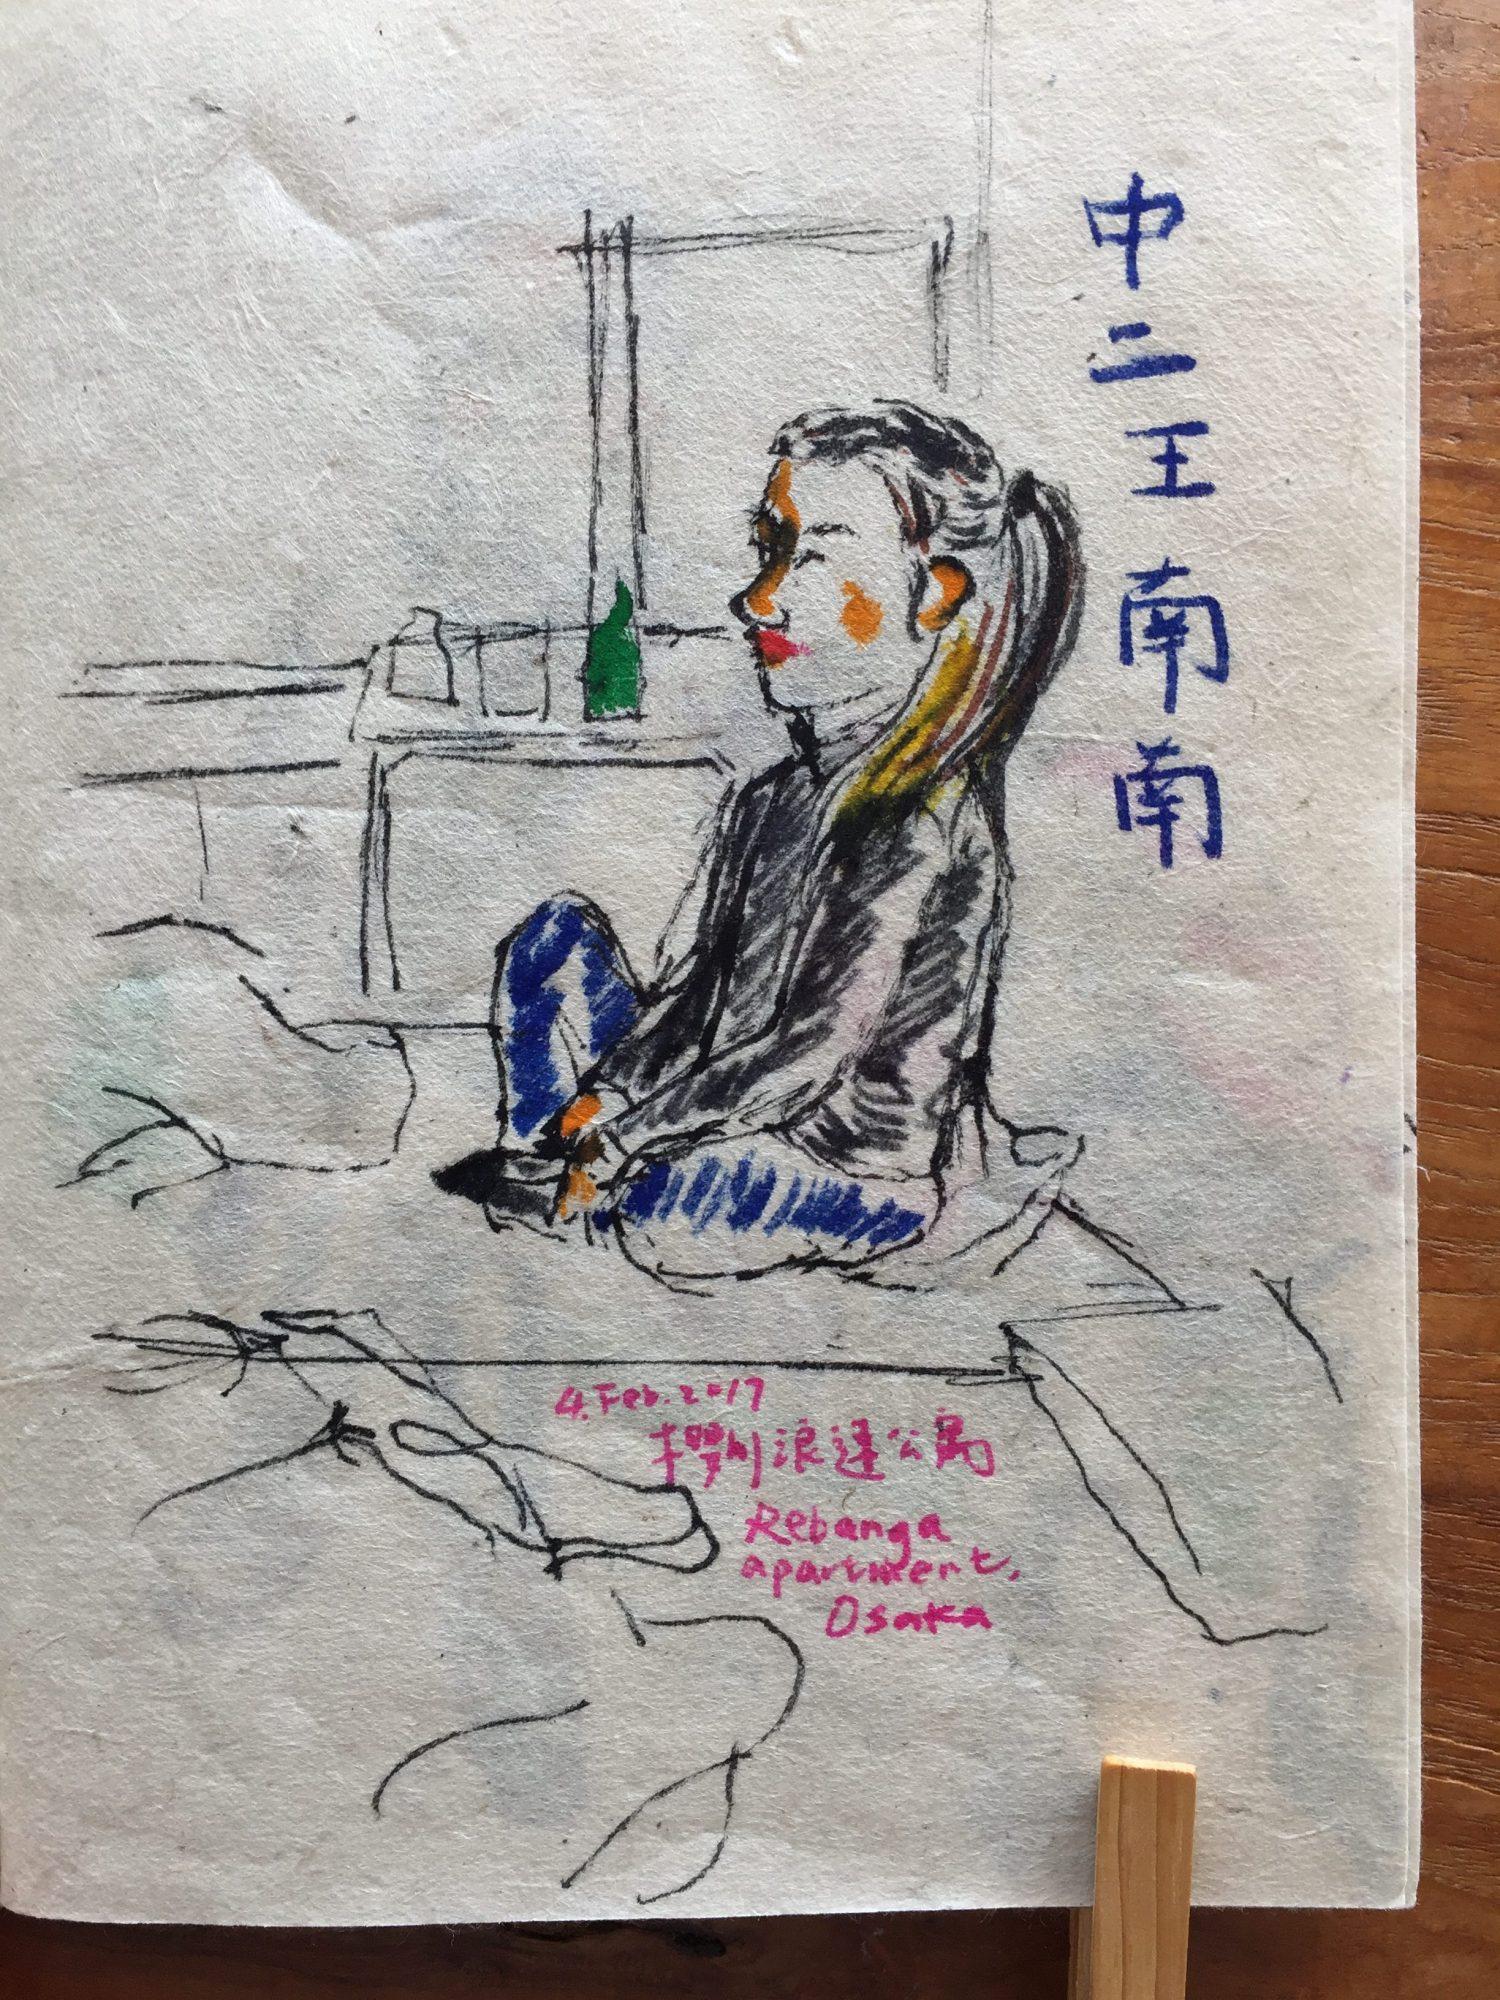 中二王南南
4.Feb.2017
櫻川浪速公寓
Rebanga
apartment,
Osaka